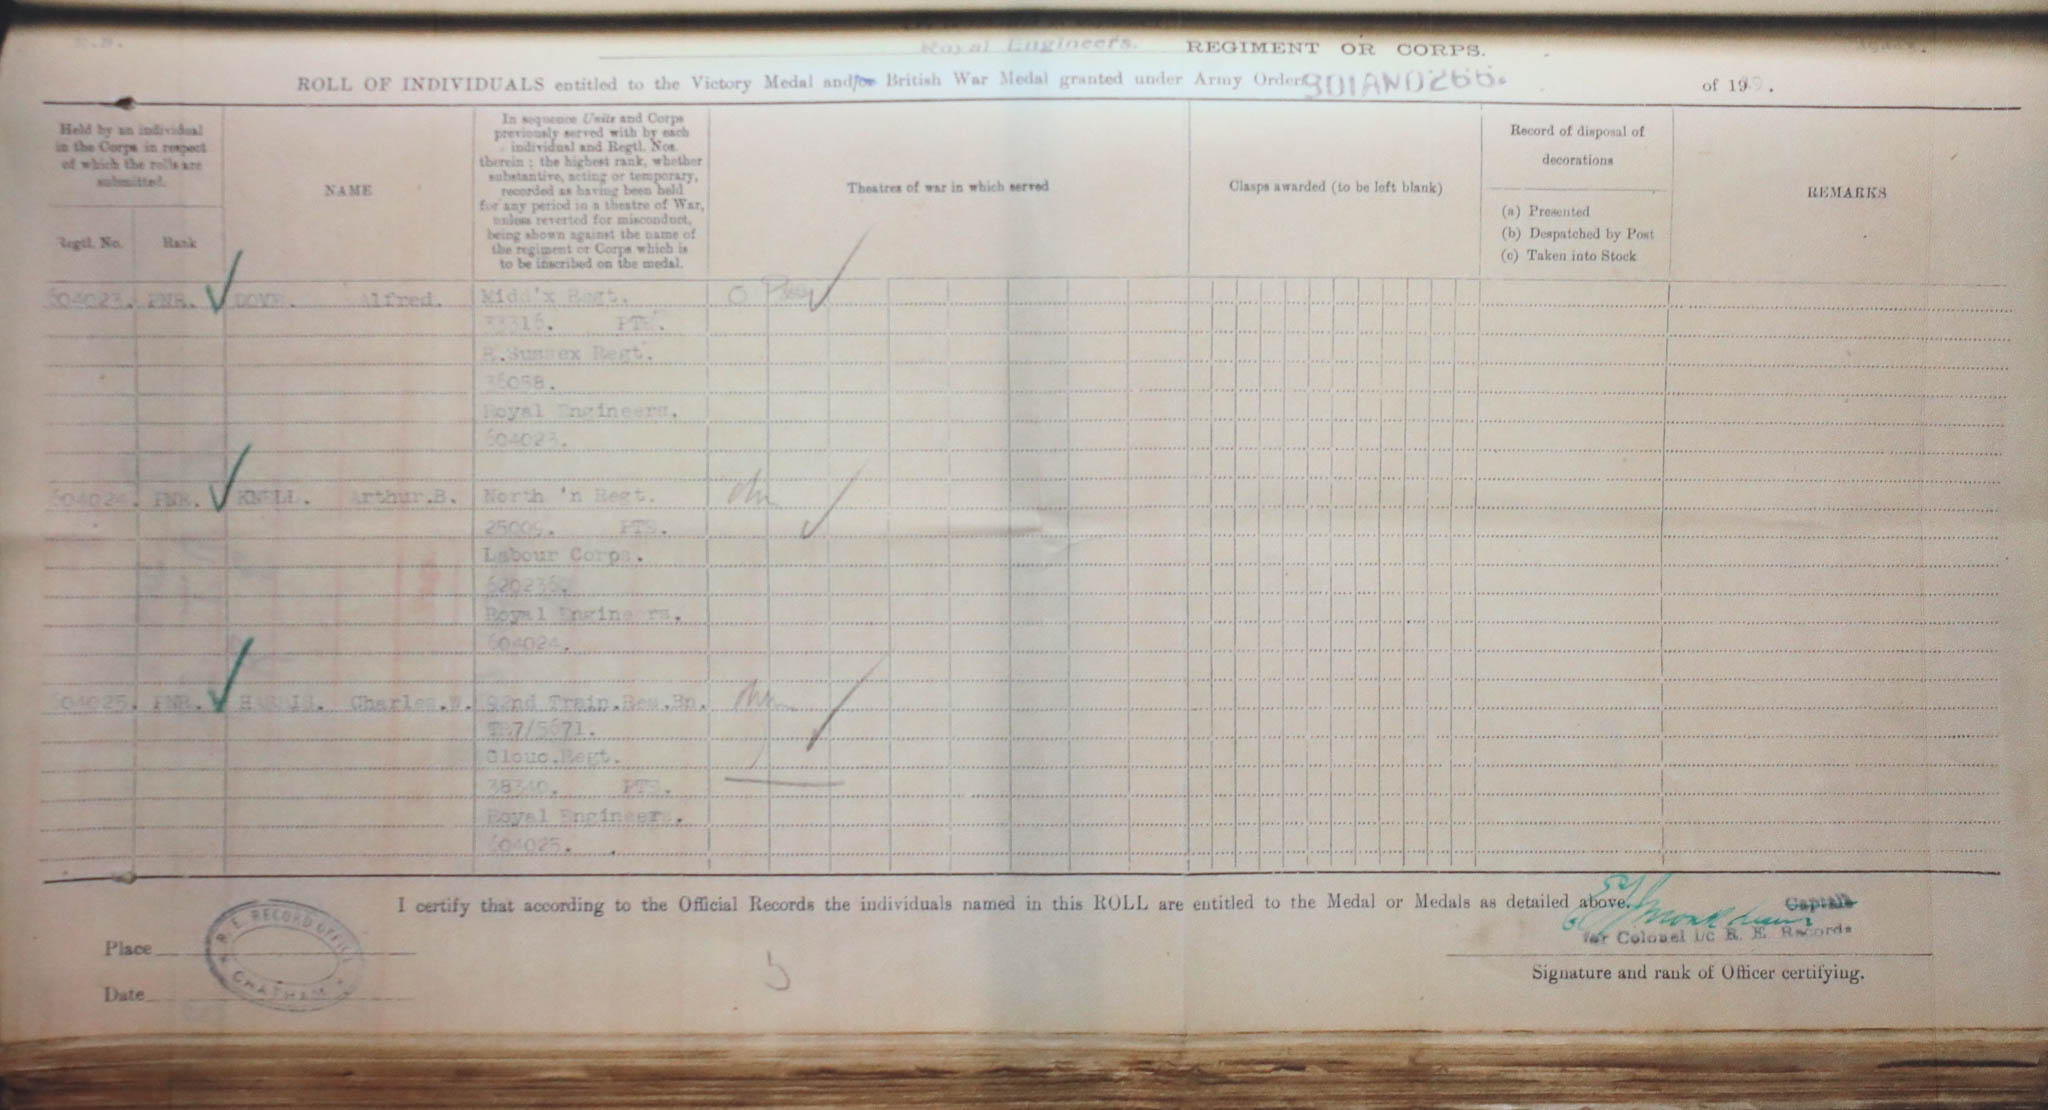 Royal Engineers. REGIMENT OR CORPS.
ROLL OF INDIVIDUALS entitled to the Victory Medal and/or British War Medal granted under Army Orders 301AND266. of 19 .
Held by an individual in the Corps in respect of which the rolls are submitted.
Regtl. No.
Rank
NAME
In sequence Units and Corps
previously served with by each
individual and Regtl. Nos.
therein ; the highest rank, whether
substantive, acting or temporary,
recorded as having been held
for any period in a theatre of War,
unless reverted for misconduct,
being shown against the name of
the regiment or Corps which is
to be inscribed on the medal.
Theatres of war in which served
Clasps awarded (to be left blank)
Record of disposal of
decorations
(a) Presented
(b) Despatched by Post
(c) Taken into Stock
REMARKS
604023. PNR. DOVE. Alfred. Midd'x Regt.
33316. PTE.
R.Sussex Regt.
36058.
Royal Engineers.
604023.
604024. PNR. KNELL. Arthur.B. North 'n Regt.
25009. PTE.
Labour Corps.
Royal Engineers.
604024.
604025. PNR. HARRIS. Charles.W. 92nd Train.Res.Bn.
TR7/5671.
Glouc.Regt.
38340. PTE.
Royal Engineers.
604025.
I certify that according to the Official Records the individuals named in this ROLL are entitled to the Medal or Medals as detailed above.
Captain
for Colonel i/c R. E. Records
Signature and rank of Officer certifying.
Place
Date
R. E. RECORD OFFICE
CHATHAM